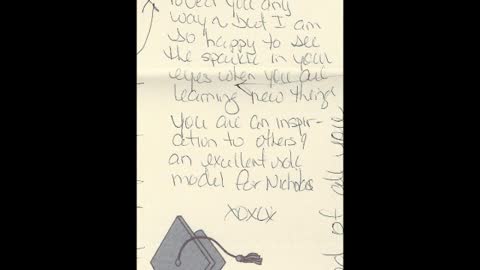 loved you any
way ~ but I am
so happy to see
the sparkle in your
eyes when you are
learning new things
you are an inspir-
ation to others &
an excellent role
model for Nicholas
XOXOX
of all you